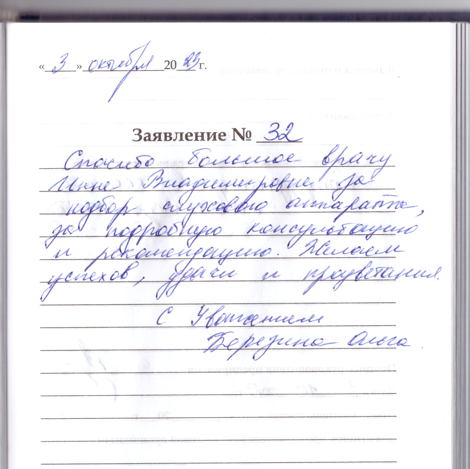 « 3 » октября 20 23 г.
Заявление № 32
Спасибо большое врачу
Инне Владимировне за
подбор слухового аппарата,
за подробную консультацию
и рекомендацию. Желаем
успехов, удачи и процветания.
С Уважением
Березина Ольга.